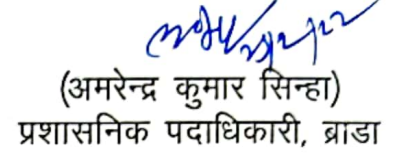 (अमरेन्द्र कुमार सिन्हा)
प्रशासनिक पदाधिकारी, ब्राडा